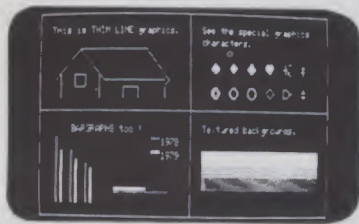 This is THIN LINE graphics.
See the special graphics
characters.
BARGRAPHS too!
1978
1979
Textured backgrounds.